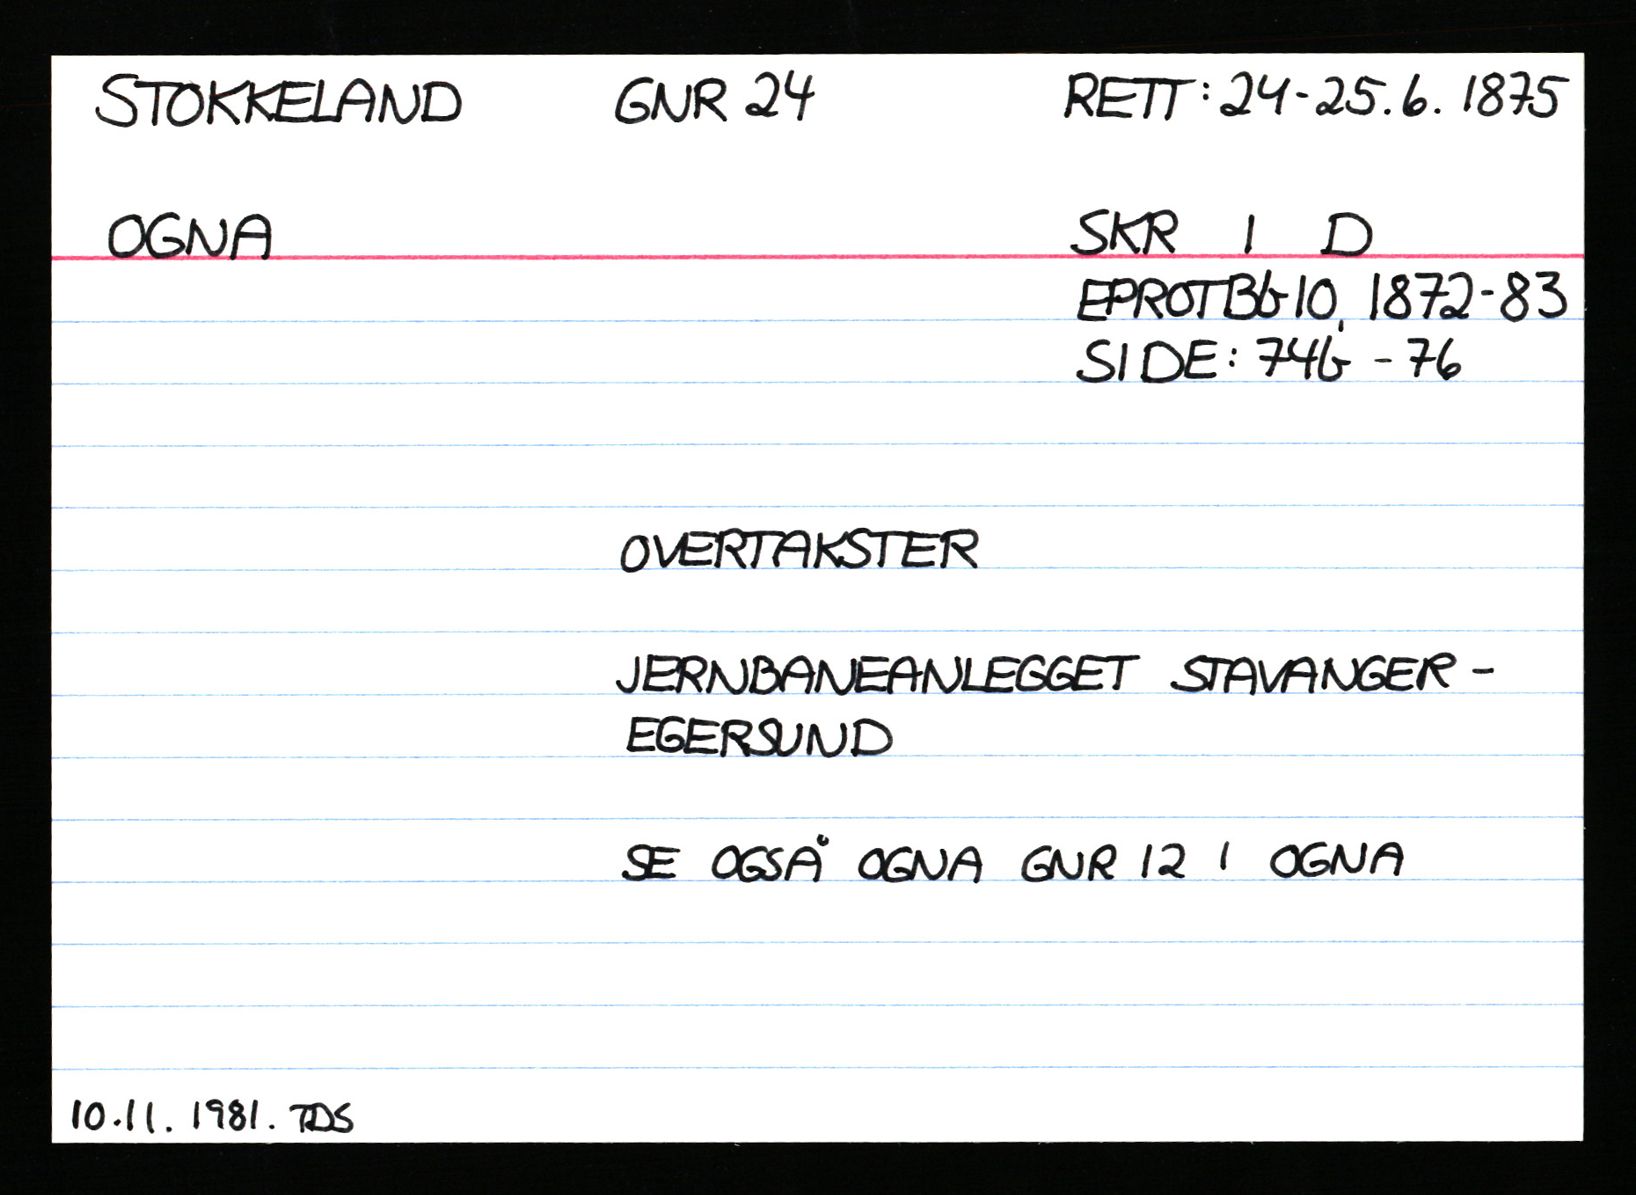 STOKKELAND GNR 24 RETT: 24-25.6. 1875
OGNA SKR I D
EPROTBb10, 1872-83
SIDE: 74b - 76
OVERTAKSTER
JERNBANEANLEGGET STAVANGER -
EGERSUND
SE OGSÅ OGNA GNR 12 I OGNA
10.11. 1981. TDS